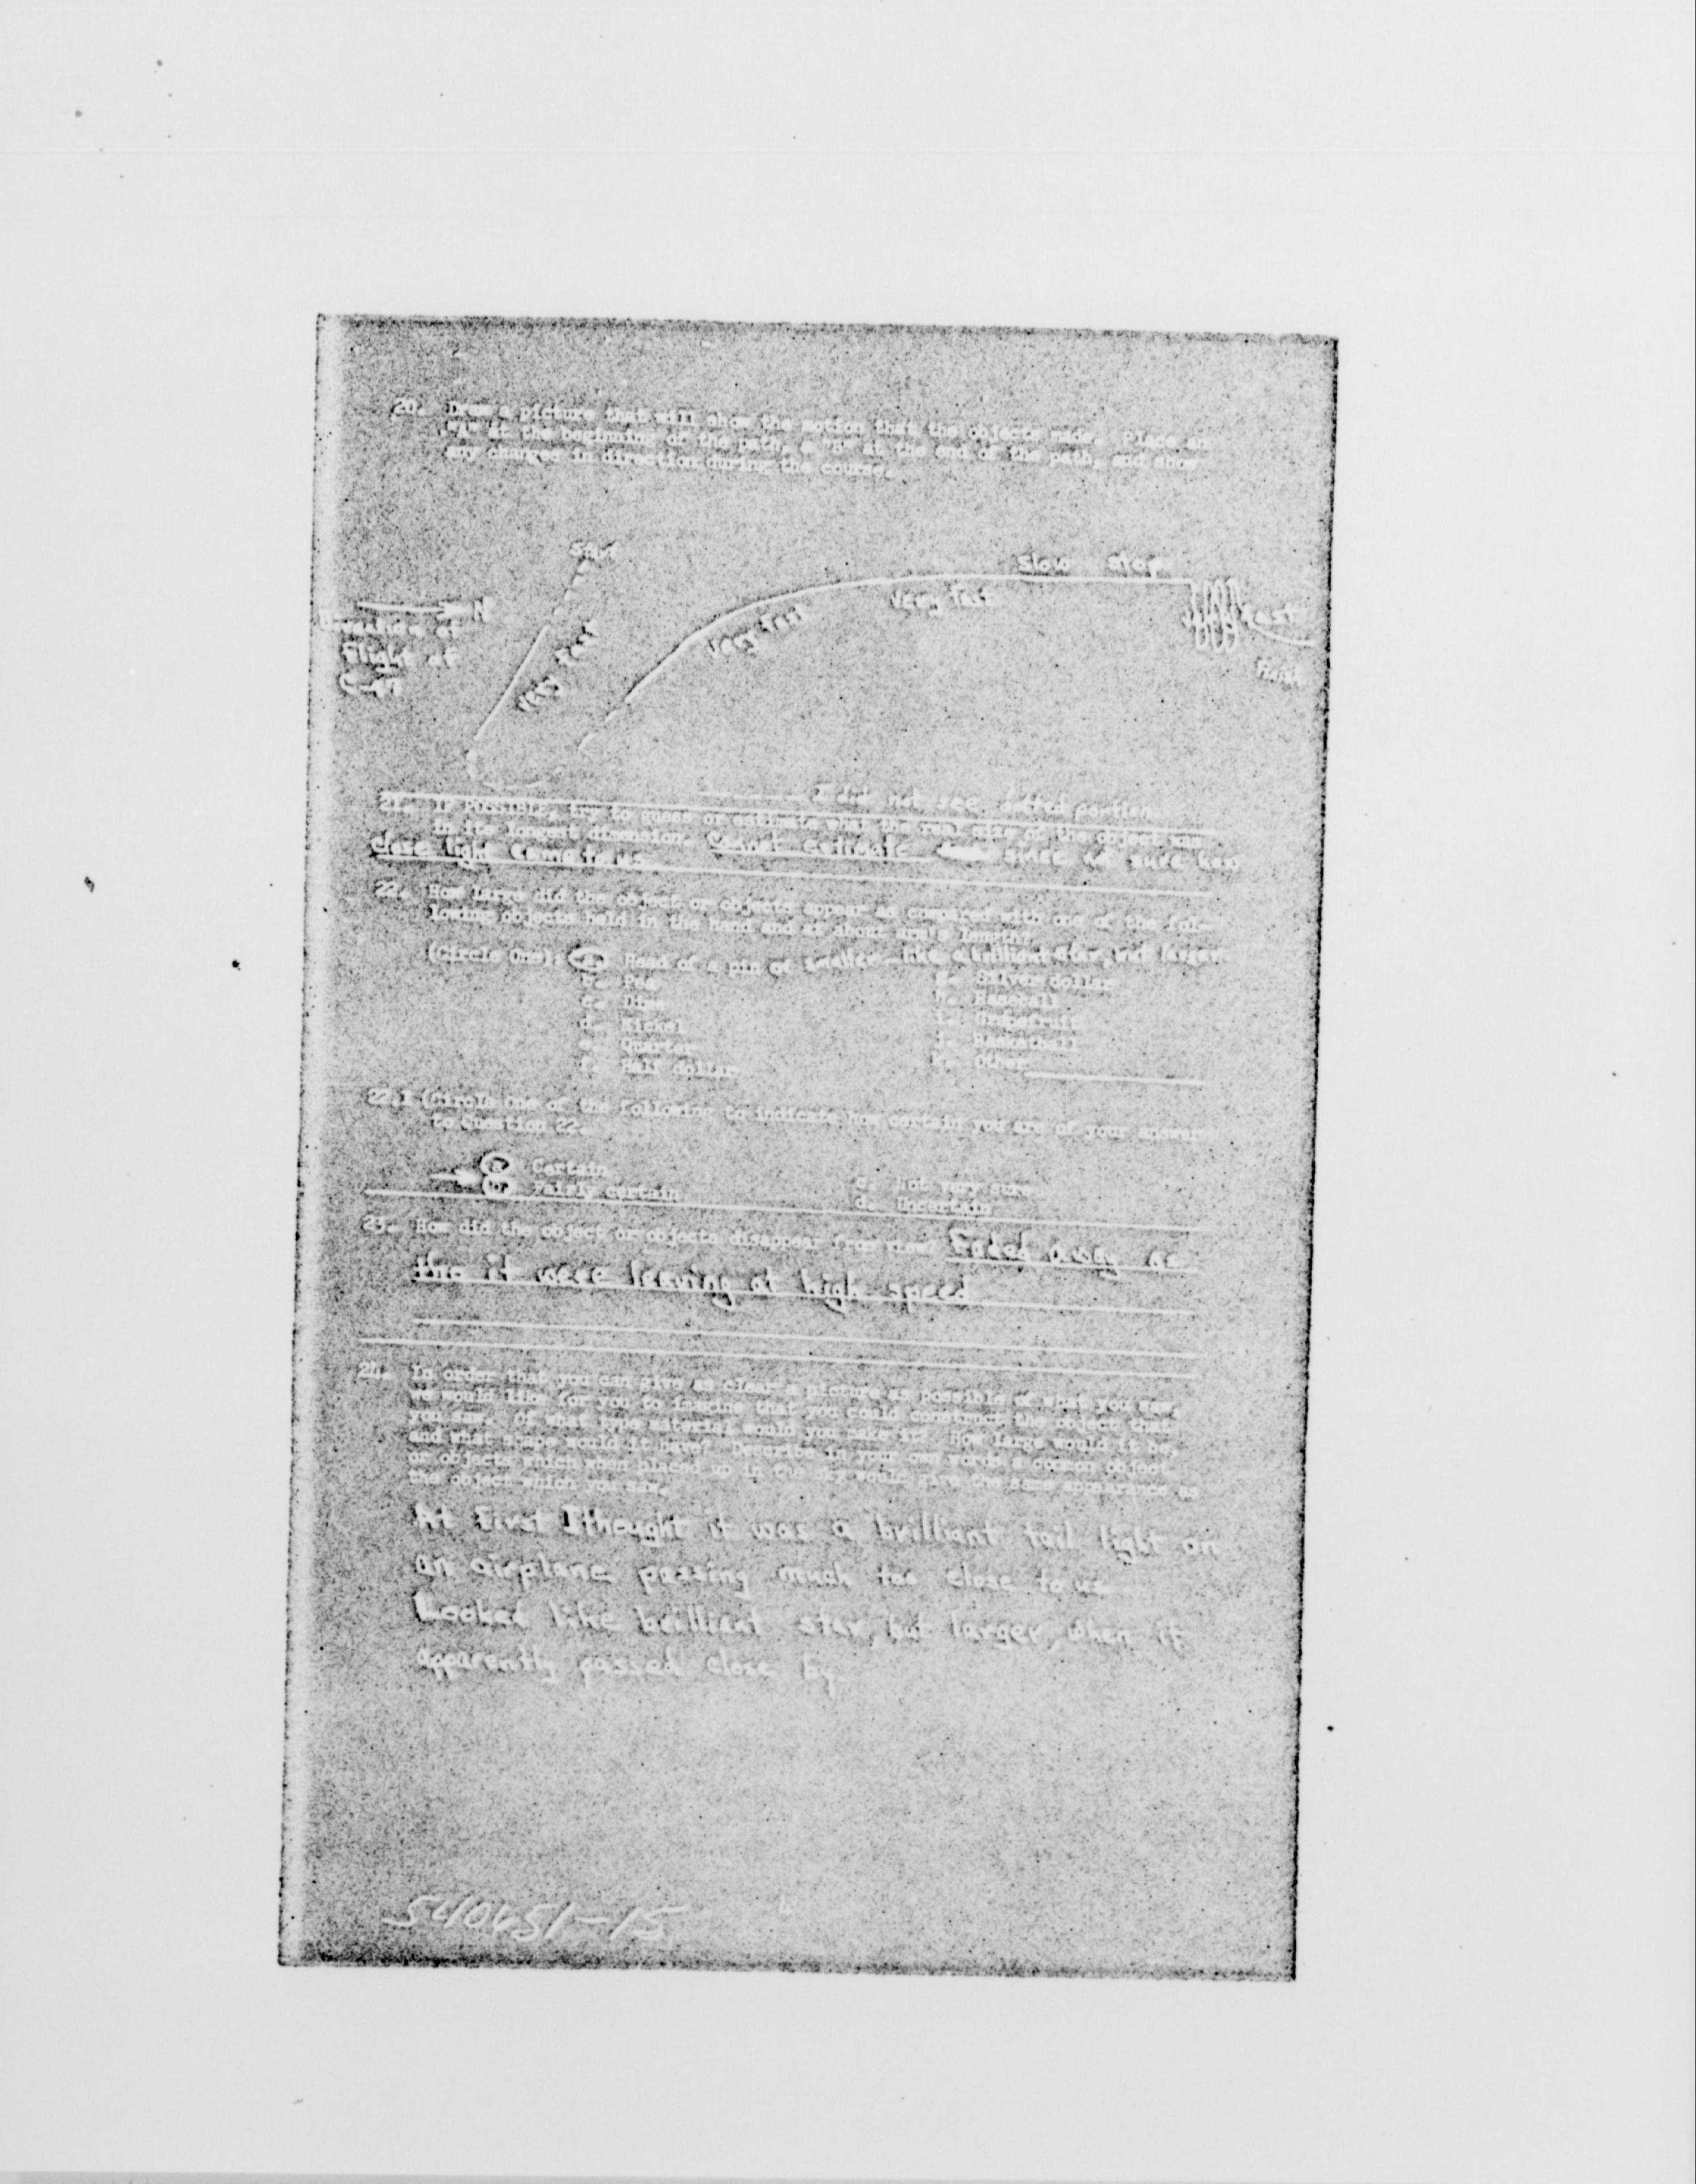 20. Draw a picture that will show the motion that the object made. Place an
"A" at the beginning of the path, a "B" at the end of the path, and show
any changes in direction during the course.
Start
Slow stop
N
Very fast
Very fast
Very fast
Fast
Direction of
Flight of
Finish
I did not see dotted portion
21. IF POSSIBLE, try to guess or estimate what the real size of the object was
in its longest dimension. Cannot estimate since not sure how
close light came to us
22. How large did the object or objects appear as compared with one of the fol-
lowing objects held in the hand and at about arm's length?
(Circle One): a. Head of a pin or smaller - like a brilliant star, but larger
b. Pea g. Silver dollar
c. Dime h. Baseball
d. Nickel i. Grapefruit
e. Quarter j. Basketball
f. Half dollar k. Other
22.1 (Circle One of the following to indicate how certain you are of your answer
to Question 22.
a. Certain c. Not very sure
b. Fairly certain d. Uncertain
23. How did the object or objects disappear from view? Faded away as
tho it were leaving at high speed
24. In order that you can give as clear a picture as possible of what you saw,
we would like for you to imagine that you could construct the object that
you saw. Of what type material would you make it? How large would it be,
and what shape would it have? Describe in your own words a common object
or objects which when placed up in the sky would give the same appearance as
the object which you saw.
At first I thought it was a brilliant tail light on
an airplane passing much too close to us
Looked like brilliant star, but larger, when it
apparently passed close by.